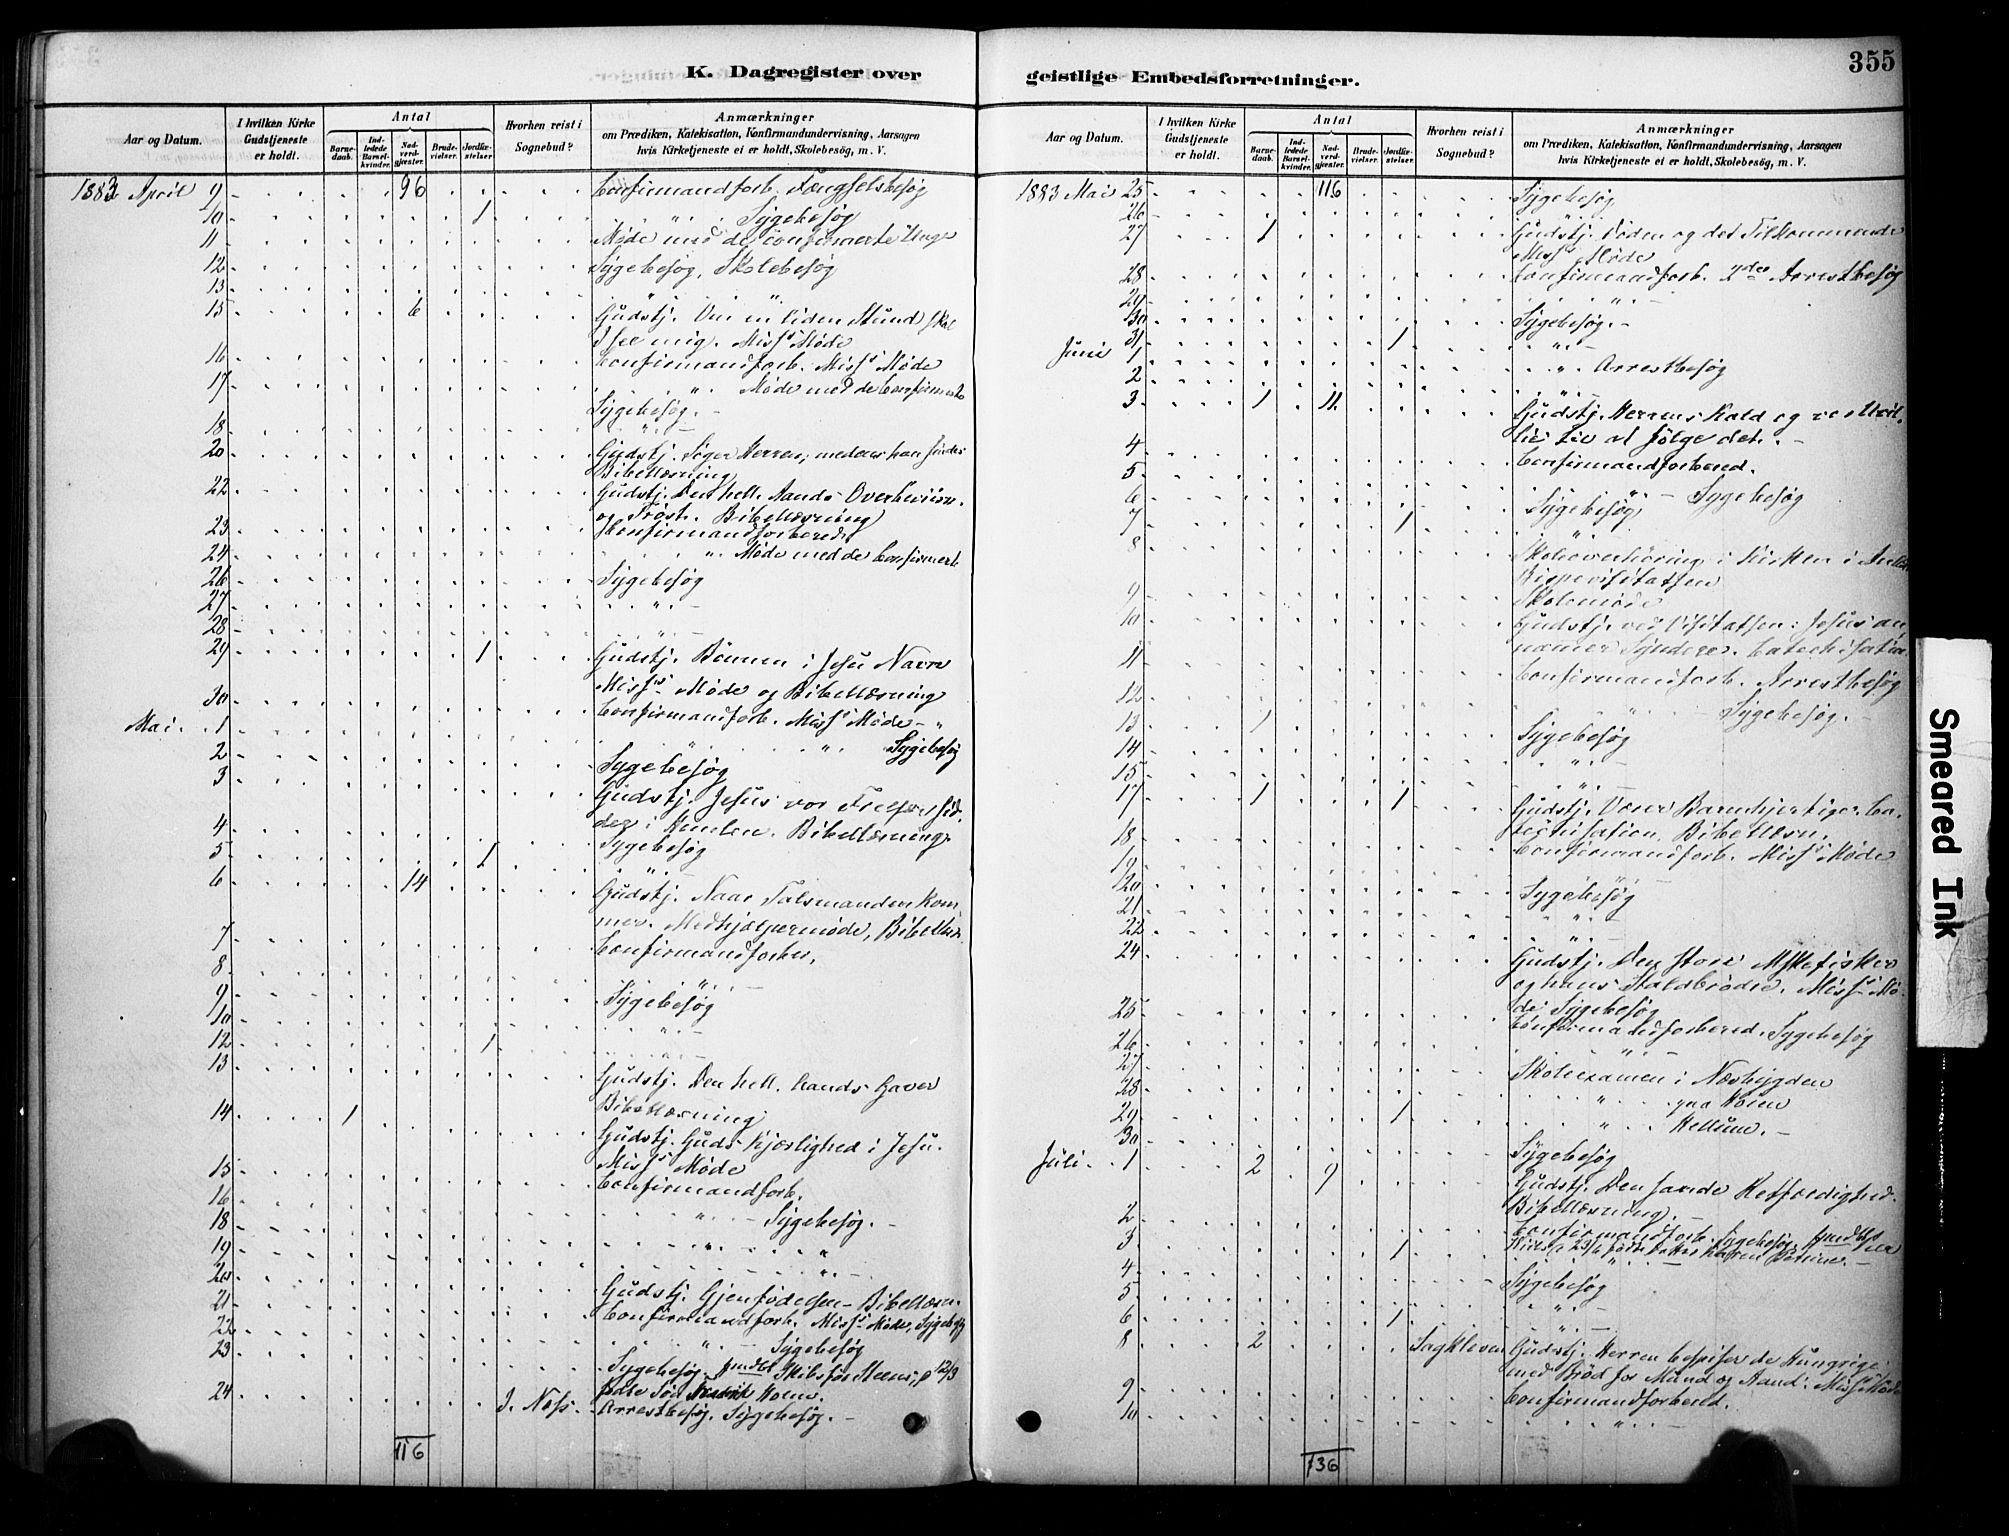 K. Dagregister over
geistlige Embedsforretninger.
355
Aar og Datum.
I hvilken Kirke Gudstjeneste er holdt.
Antal
Barnedaab.
Indledede Barselkvinder.
Nadverdgjæster.
Brudevielser.
Jordfæstelser.
Hvorhen reist i Sognebud?
Anmærkninger
om Prædiken, Katekisation, Konfirmandundervisning, Aarsagen
hvis Kirketjeneste ei er holdt, Skolebesög, m. V.
1883 April 9 96 Confirmandforb. Fængselsbesøg
10 1 " Sygebesøg
11 Møde med de confirmerte Unge
12 Sygebesøg, Skolebesøg
13 " "
15 6 Gudstj. Om en liden Stund skal
I see mig. Miss. Møde
16 Confirmandforb. Miss. Møde
17 " Møde med de Confirmerte
Sygebesøg. -
18 "
20 Gudstj. Søger Herren, medens han findes
Bibellæsning
22 Gudstj. Den hell. Aands Overbeviisn.
og Trøst. Bibellæsning
23 Confirmandforbered.
24 " Møde med de Confirmerte
26 Sygebesøg
27 " -
28 " -
29 1 Gudstj. Bønnen i Jesu Navn
Miss. Møde og Bibellæsning
30 Confirmandforb. Miss. Møde - "
Mai. 1 " " Sygebesøg
2 Sygebesøg
3 Gudstj. Jesus vor Frelser sid-
der i Himlen. Bibellæsning.
4 Sygebesøg
5 1 "
6 14 Gudstj. Naar Talsmanden kom-
mer. Medhjælpermøde, Bibellæsn.
7 Confirmandforber.
8 " -
9 Sygebesøg
10 " -
12 1 "
13 Gudstj. Den hell. Aands Gaver
Bibellæsning
14 1 Gudstj. Guds Kjærlighed i Jesu.
Miss. Møde
15 Confirmandforb.
16 " - Sygebesøg. -
18 " "
19 " -
20
21 Gudstj. Gjenfødelsen - Bibellæsn.
22 Confirmandforb. Miss. Møde, Sygebesøg
23 " - Sygebesøg
Sygebesøg, 12/3
24 J. Næs. Arrestbesøg. Sygebesøg. -
116
Aar og Datum.
I hvilken Kirke Gudstjeneste er holdt.
Antal
Barnedaab.
Indledede Barselkvinder.
Nadverdgjæster.
Brudevielser.
Jordfæstelser.
Hvorhen reist i Sognebud?
Anmærkninger
om Prædiken, Katekisation, Konfirmandundervisning, Aarsagen
hvis Kirketjeneste ei er holdt, Skolebesög, m. V.
1883 Mai 25 116 Sygebesøg
26 "
27 1 Gudstj. Døden og det Tilkommende
Miss. Møde
28 Confirmandforb. 2den Arrestbesøg
29 " -
30 Sygebesøg. -
31 1 " -
Juni 1 " Arrestbesøg
2 "
3 1 11 Gudstj. Herrens Kald og vor Uvil-
lie til at følge det. -
4 Confirmandforbered.
5 " - Sygebesøg
6 Sygebesøg
7 1 "
8 Skoleoverhøring i Kirken i Anl.
Bispevisitatsen
9 Skolemøde
10 Gudstj. ved Visitatsen: Jesus an
nammer Syndere. Catechisation
11 Confirmandforb. Arrestbesøg
12 " - Sygebesøg. -
13 1 Sygebesøg
14 " -
15 "
17 1 1 Gudstj. Værer Barmhjertige. Ca-
techisation, Bibellæsn.
18 Confirmandforb. Miss. Møde
19 "
20 Sygebesøg
21 "
22 " -
24 Gudstj. Den store
og hans Staldbrødre. Miss. Mø-
de, Sygebesøg
25 Confirmandforbered. Sygebesøg
26 " -
27 Skoleexamen i Næsbygden
28 " paa Hoien
29 1 " Hellene. -
30 Sygebesøg
Juli. 1 2 9 Gudstj. Den sande Retfærdighed.
Bibellæsning. -
2 Confirmandforb. Sygebesøg,
3 1 23/6 Karen
4 Sygebesøg
5 " -
6 1 " -
8 2 Sagkleven Gudstj. Herren bespiser de Hungrige
med Brød for Mund og Aand. Miss. Møde
9 Confirmandforbered.
10 " -
136
Smeared Ink